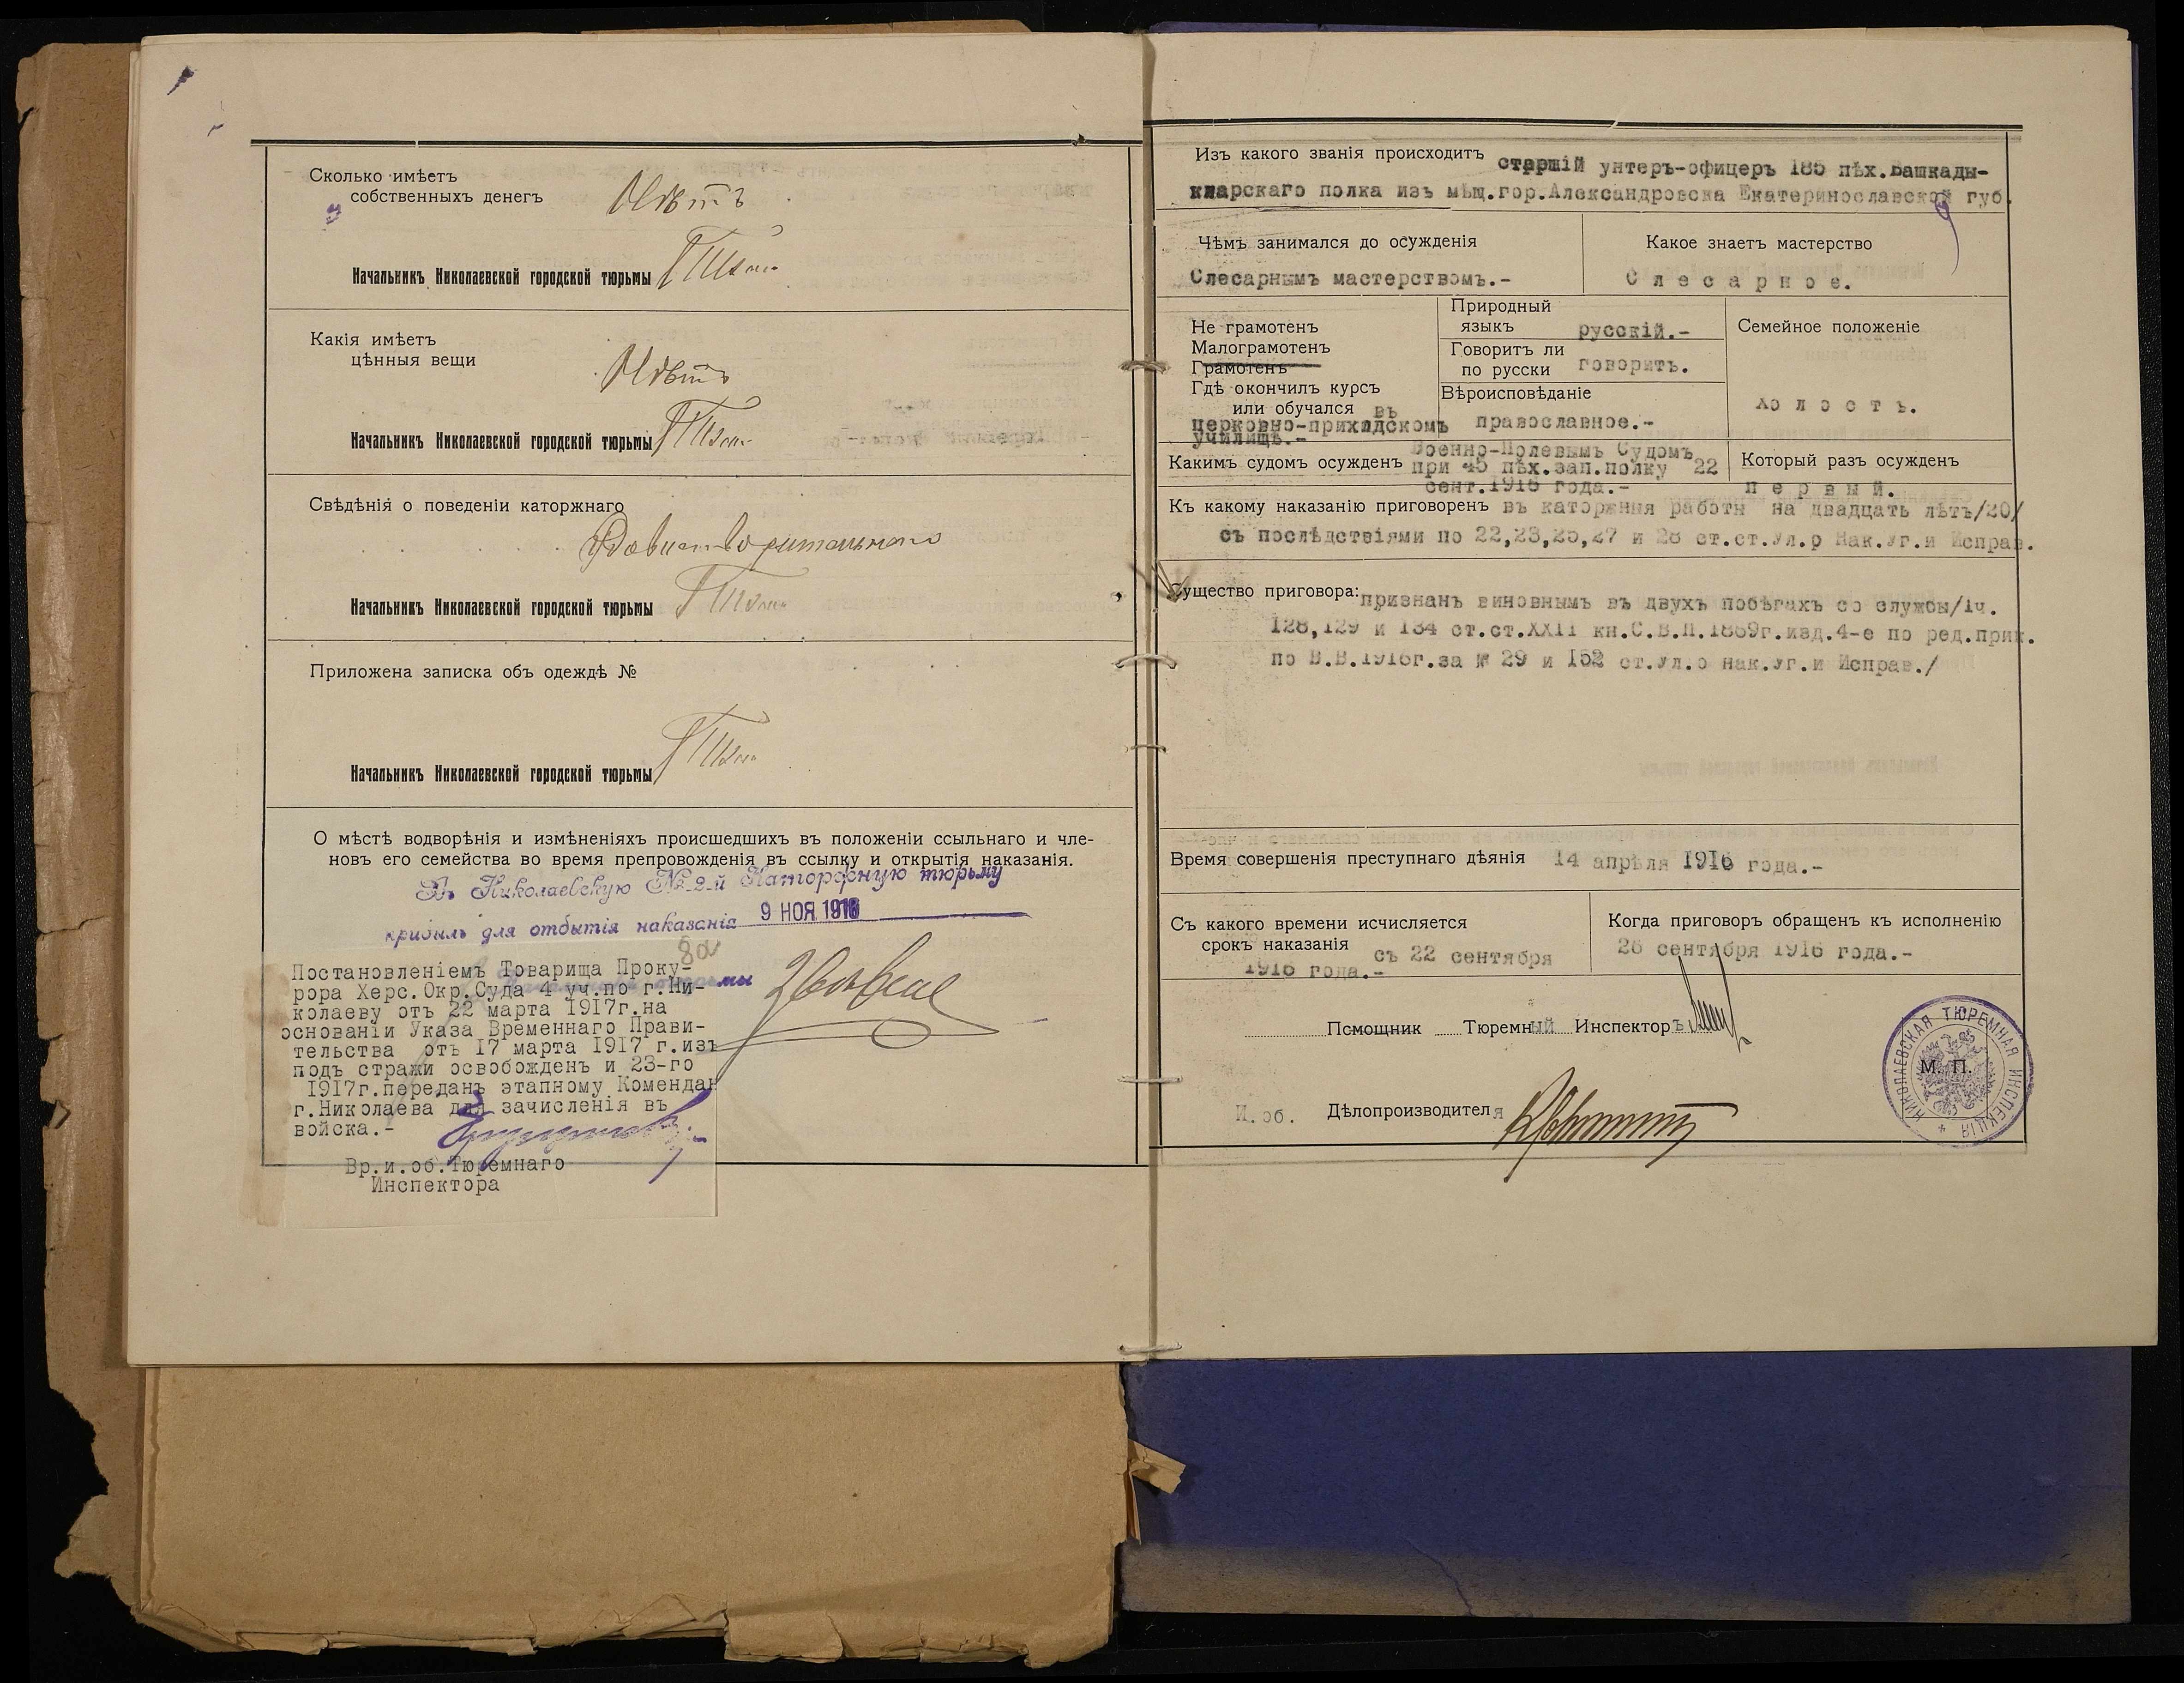 Сколько имѣетъ
собственныхъ денегъ
Нѣтъ
Начальникъ Николаевской городской тюрьмы
Какія имѣетъ
цѣнныя вещи
Нѣтъ
Начальникъ Николаевской городской тюрьмы
Свѣдѣнія о поведеніи каторжнаго
Удовлетворительнаго
Начальникъ Николаевской городской тюрьмы
Приложена записка объ одеждѣ №
Начальникъ Николаевской городской тюрьмы
О мѣстѣ водворѣнія и измѣненіяхъ происшедшихъ въ положеніи ссыльнаго и чле-
новъ его семейства во время препровожденія въ ссылку и открытія наказанія.
Въ Николаевскую № 2-й Каторжную тюрьму
прибылъ для отбытія наказанія 9 НОЯ 1916
8а
Постановленіемъ Товарища Проку-
рора Херс.Окр.Суда 4 уч.по г.Ни-
колаеву отъ 22 марта 1917г.на
основаніи Указа Временнаго Прави-
тельства отъ 17 марта 1917 г.изъ
подъ стражи освобожденъ и 23-го
1917г.переданъ этапному Комендан
г.Николаева для зачисленія въ
войска.-
Вр.и.об.Тюремнаго
Инспектора
Изъ какого званія происходитъ старшій унтеръ-офицеръ 185 пѣх.Башкады-
кларскаго полка изъ мѣщ.гор.Александровска Екатеринославской губ.
Чѣмъ занимался до осужденія
Слесарнымъ мастерствомъ.-
Какое знаетъ мастерство
С л е с а р н о е.
Не грамотенъ
Малограмотенъ
Грамотенъ
Гдѣ окончилъ курсъ
или обучался въ
церковно-приходскомъ
училищѣ.-
Природный
языкъ русскій.-
Говоритъ ли
по русски говоритъ.
Вѣроисповѣданіе
православное.-
Семейное положеніе
Х о л о с т ъ.
Какимъ судомъ осужденъ Военно-Полевымъ Судомъ
при 45 пѣх.зап.полку 22
сент.1916 года.-
Который разъ осужденъ
п е р в ы й.
Къ какому наказанію приговоренъ въ каторжныя работы на двадцать лѣтъ/20/
съ послѣдствіями по 22,23,25,27 и 28 ст.ст.Ул.о Нак.Уг.и Исправ.
Существо приговора: признанъ виновнымъ въ двухъ побѣгахъ со службы/1ч.
128,129 и 134 ст.ст.XXII кн.С.В.П.1869г.изд.4-е по ред.прик.
по В.В.1916г.за № 29 и 152 ст.Ул.о Нак.Уг.и Исправ./
Время совершенія преступнаго дѣянія 14 апрѣля 1916 года.-
Съ какого времени исчисляется
срокъ наказанія съ 22 сентября
1916 года.-
Когда приговоръ обращенъ къ исполненію
26 сентября 1916 года.-
Помощникъ Тюремный Инспекторъ
НИКОЛАЕВСКАЯ ТЮРЕМНАЯ ИНСПЕКЦІЯ
М. П.
И.об. Дѣлопроизводителя